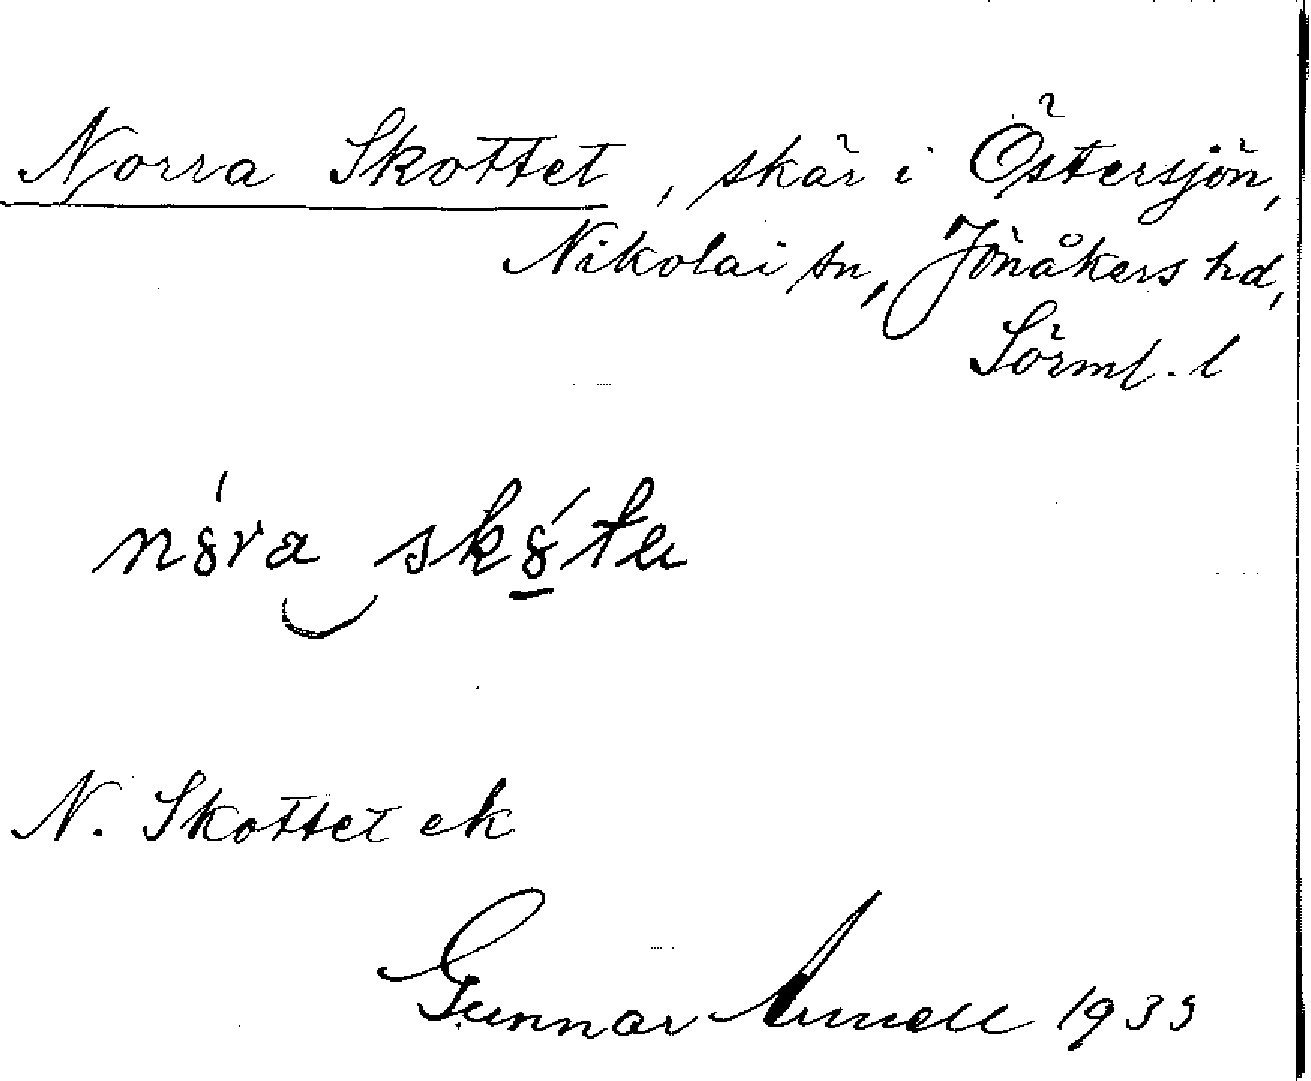 Norra Skottet, skär i Östersjön,
Nikolai sn, Jönåkers hd,
Sörml. l
N. Skottet ek
Gunnar 1935